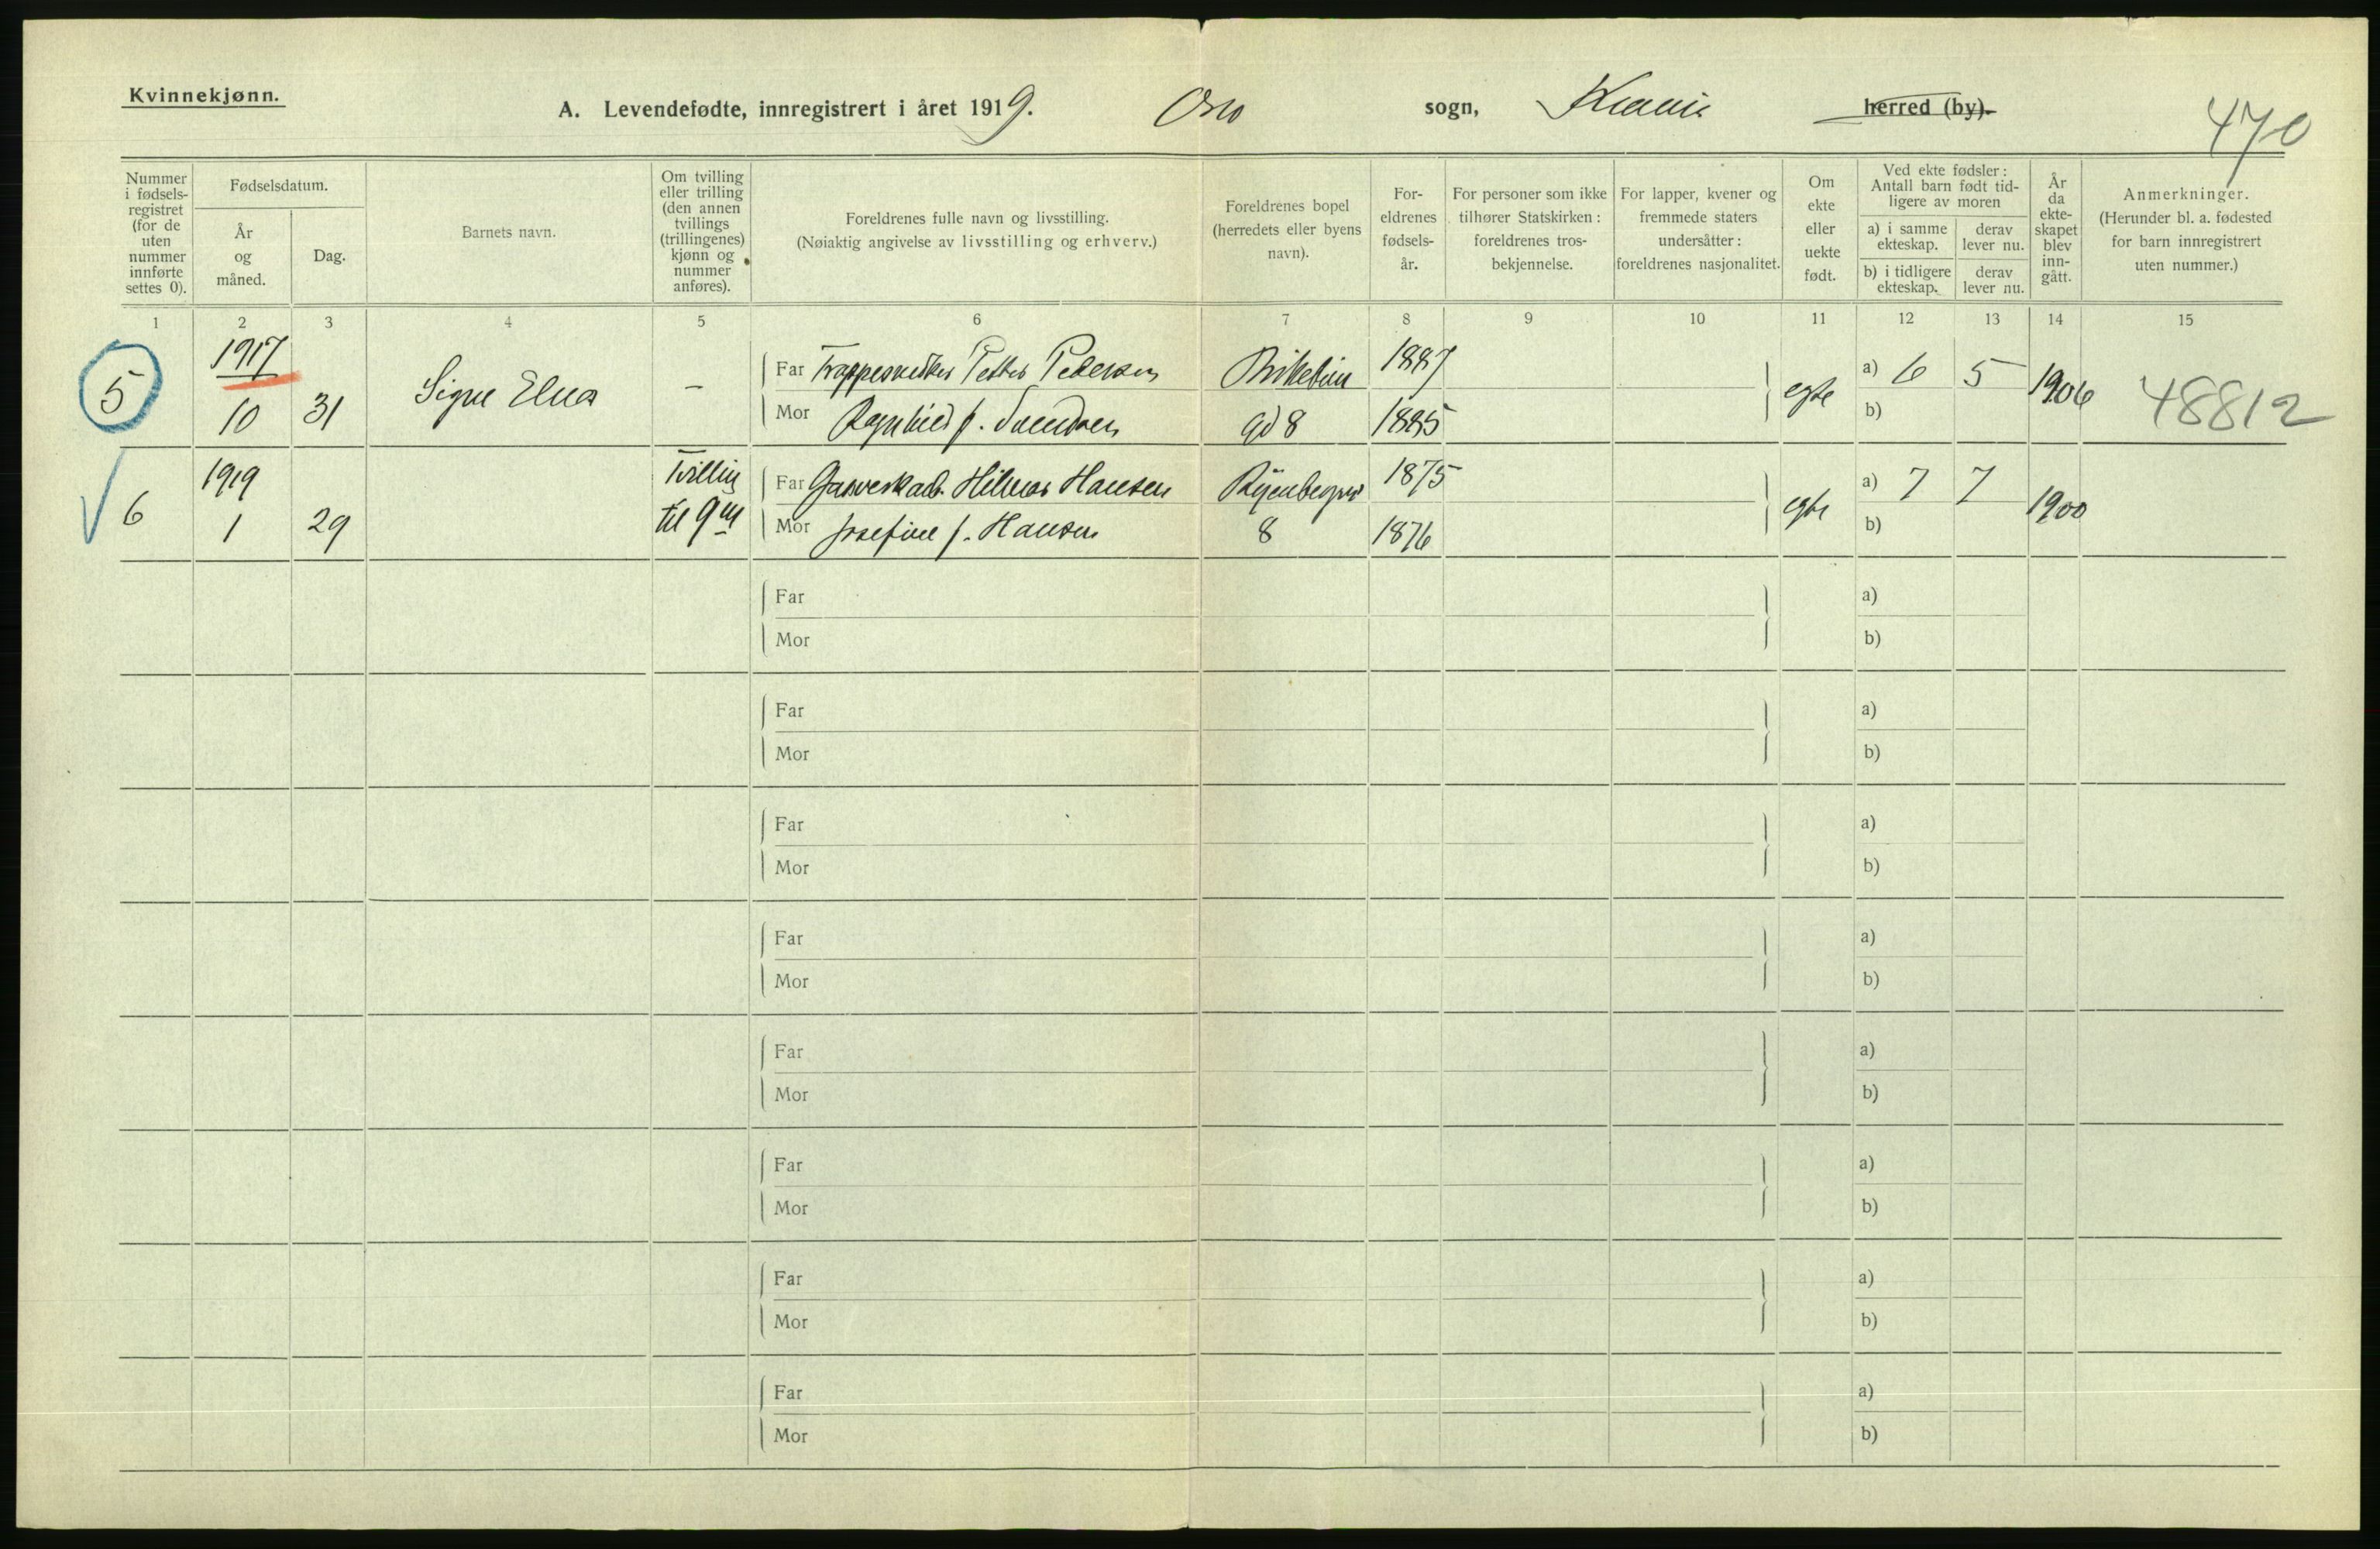 Kvinnekjønn.
A. Levendefødte, innregistrert i året 1919. Oslo sogn, Kr.ania herred (by).
470
Nummer i fødsels-registret (for de uten nummer innførte settes 0).
Fødselsdatum.
År og måned.
Dag.
Barnets navn.
Om tvilling eller trilling (den annen tvillings (trillingenes) kjønn og nummer anføres).
Foreldrenes fulle navn og livsstilling.
(Nøiaktig angivelse av livsstilling og erhverv.)
Foreldrenes bopel (herredets eller byens navn).
For-eldrenes fødsels-år.
For personer som ikke tilhører Statskirken: foreldrenes tros-bekjennelse.
For lapper, kvener og fremmede staters undersåtter: foreldrenes nasjonalitet.
Om ekte eller uekte født.
Ved ekte fødsler: Antall barn født tid-ligere av moren
a) i samme ekteskap.
derav lever nu.
b) i tidligere ekteskap.
derav lever nu.
År da ekte-skapet blev inn-gått.
Anmerkninger.
(Herunder bl. a. fødested for barn innregistrert uten nummer.)
1 2 3 4 5 6 7 8 9 10 11 12 13 14 15
5 1917 10 31 Signe Elna –
Far Trappesnedker Petter Pedersen 1887
Mor Ragnhild f. Svendsen gd 8 1885
egte a) 6 5 b) 1906 48812
6 1919 1 29 Tvilling til 9
Far Gasverkarb. Hilmar Hansen Ryenbergv 1875
Mor Josefine f. Hansen 8 1876
egte a) 7 7 b) 1900
Far a)
Mor b)
Far a)
Mor b)
Far a)
Mor b)
Far a)
Mor b)
Far a)
Mor b)
Far a)
Mor b)
Far a)
Mor b)
Far a)
Mor b)